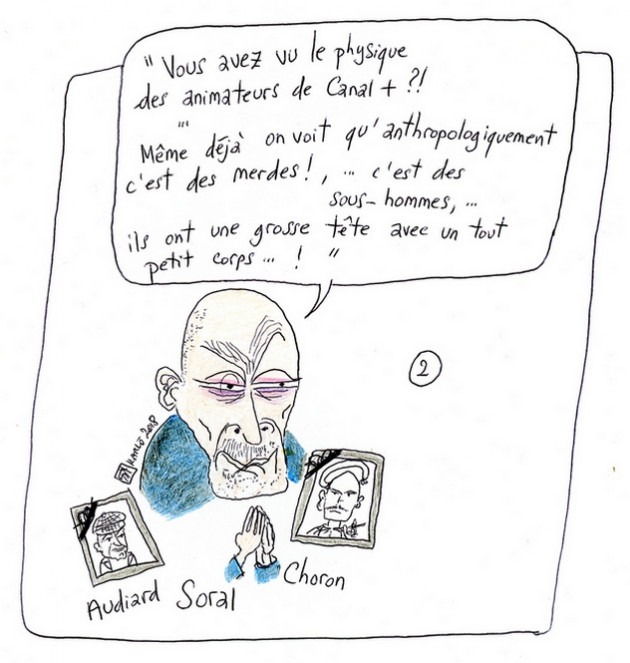 " Vous avez vu le physique
des animateurs de Canal + ?!
...
Même déjà on voit qu'anthropologiquement
c'est des merdes !, ... c'est des
sous-hommes, ...
ils ont une grosse tête avec un tout
petit corps ... ! "
2
2018
Audiard Soral Choron